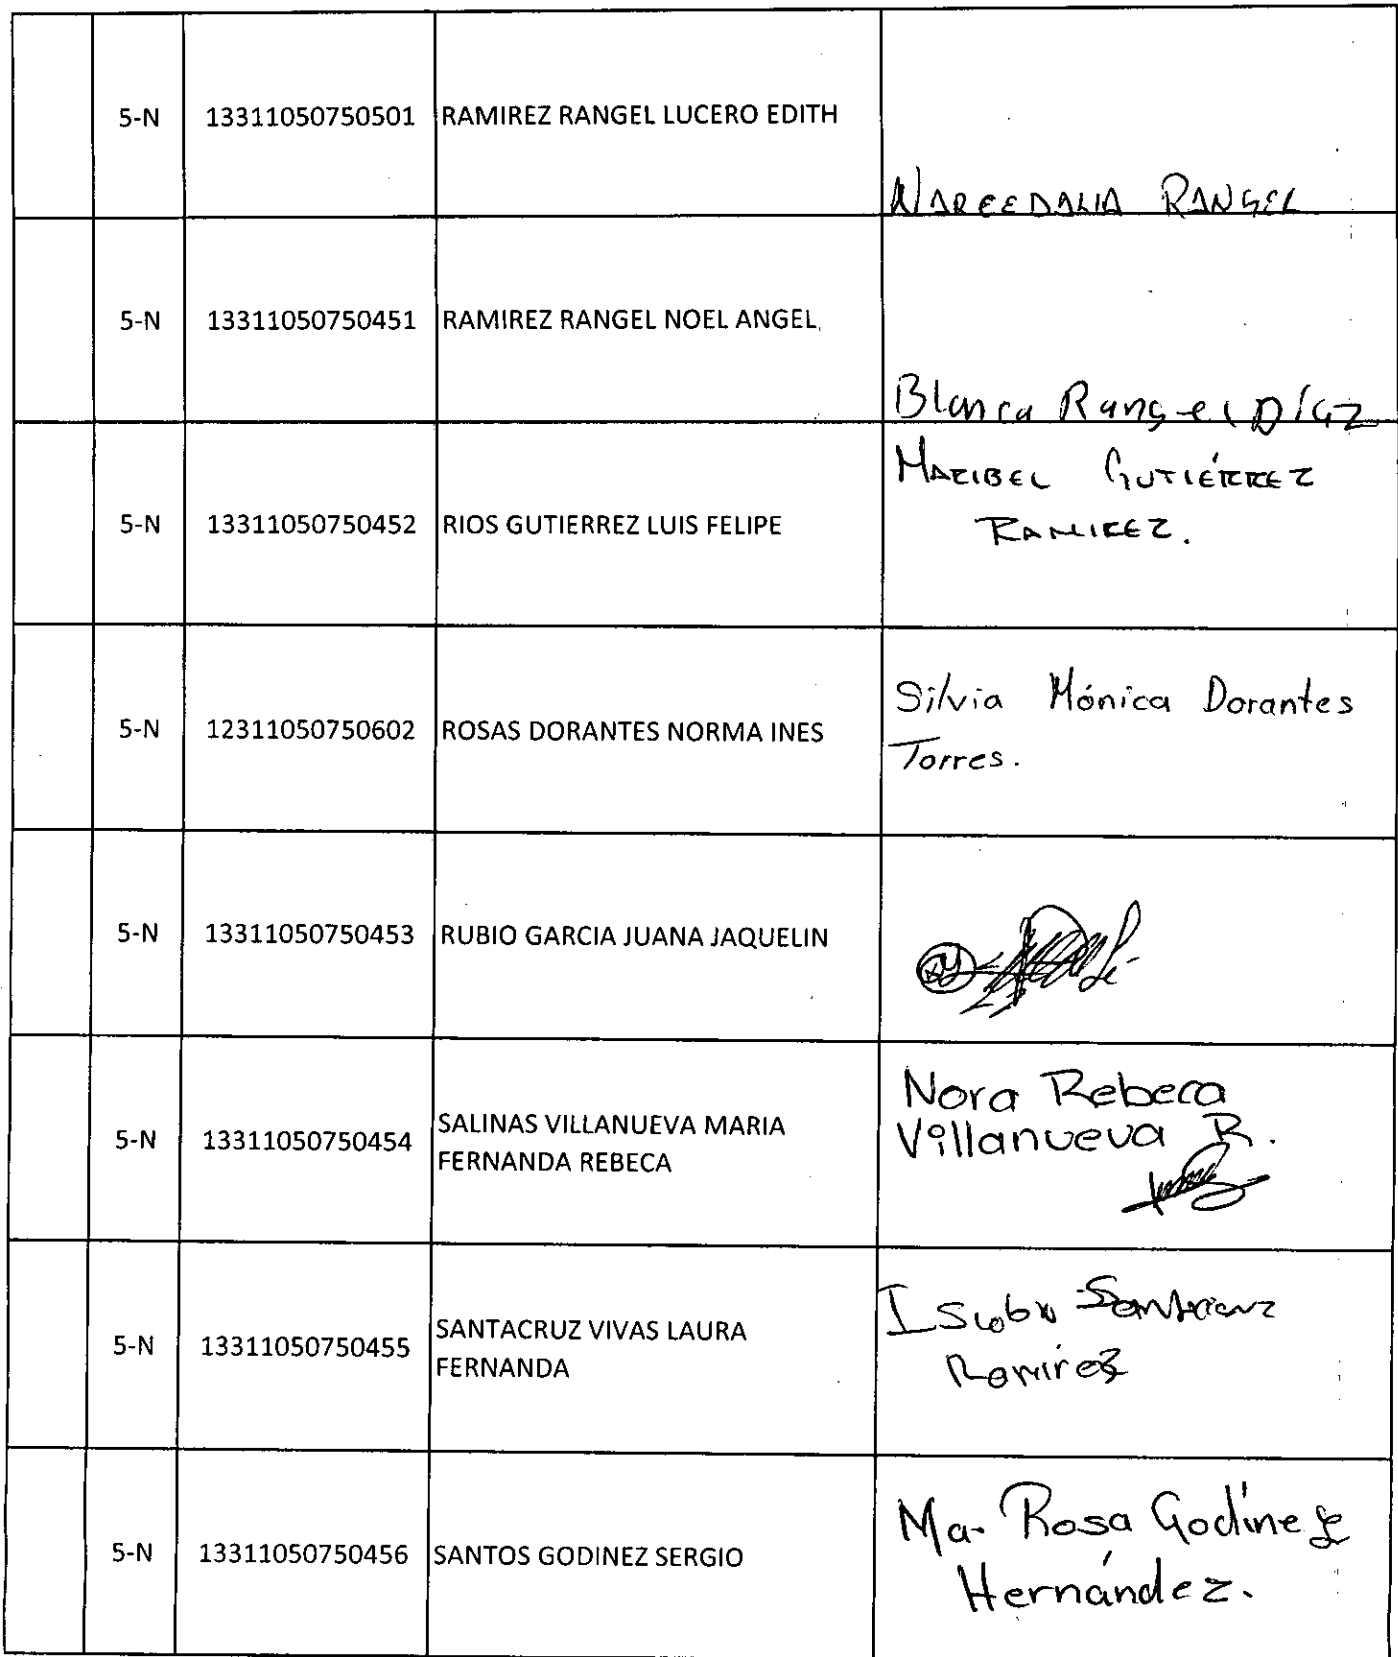 5-N 13311050750501 RAMIREZ RANGEL LUCERO EDITH
NARCEDALIA RANGEL
5-N 13311050750451 RAMIREZ RANGEL NOEL ANGEL
Blanca Rangel Díaz
MARIBEL GUTIÉRREZ
5-N 13311050750452 RIOS GUTIERREZ LUIS FELIPE
RAMIREZ.
Silvia Mónica Dorantes
5-N 12311050750602 ROSAS DORANTES NORMA INES
Torres.
5-N 13311050750453 RUBIO GARCIA JUANA JAQUELIN
Nora Rebeca
5-N 13311050750454 SALINAS VILLANUEVA MARIA
FERNANDA REBECA
Villanueva R.
5-N 13311050750455 SANTACRUZ VIVAS LAURA
FERNANDA
Santacruz
Ramirez
5-N 13311050750456 SANTOS GODINEZ SERGIO
Ma. Rosa Godínez
Hernández.